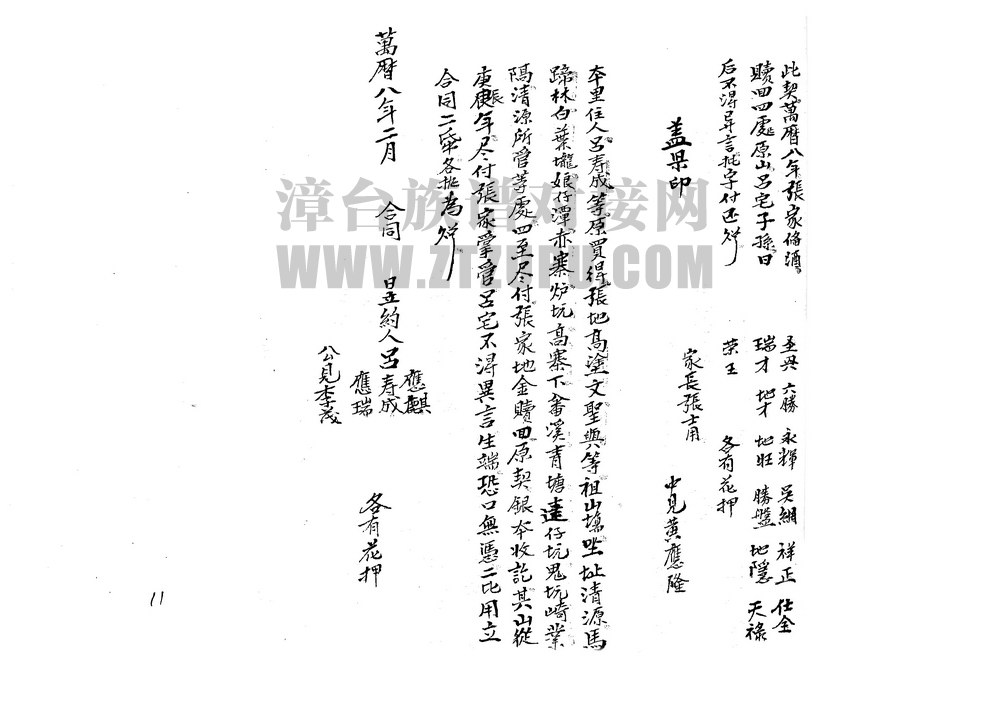 此契萬曆八年張家俻酒
贖回四處原山呂宅子孫日
后不得异言批字付还炤
孟典 六勝 永輝 吳綱 祥正 仕全
瑞才 地才 地旺 勝盤 地隱 天祿
榮王 各有花押
盖果印
家長張士用
中見黃應隆
本里住人呂寿成等原買得張地髙塗文聖典等祖山塲坐址清源馬
蹄林白葉壠娘仔潭赤寨炉坑髙寨下畬溪青塘 仔坑鬼坑崎業
隔清源所管等處四至尽付張家地金贖回原契銀夲收訖其山從
庚辰年尽付張家掌管呂宅不得異言生端恐口無憑二比用立
合同二帋各执為炤
萬曆八年二月 合同 日立約人呂寿成
應麒
應瑞
公見李茂
各有花押
漳台族谱对接网
WWW.ZTZUPU.COM
11